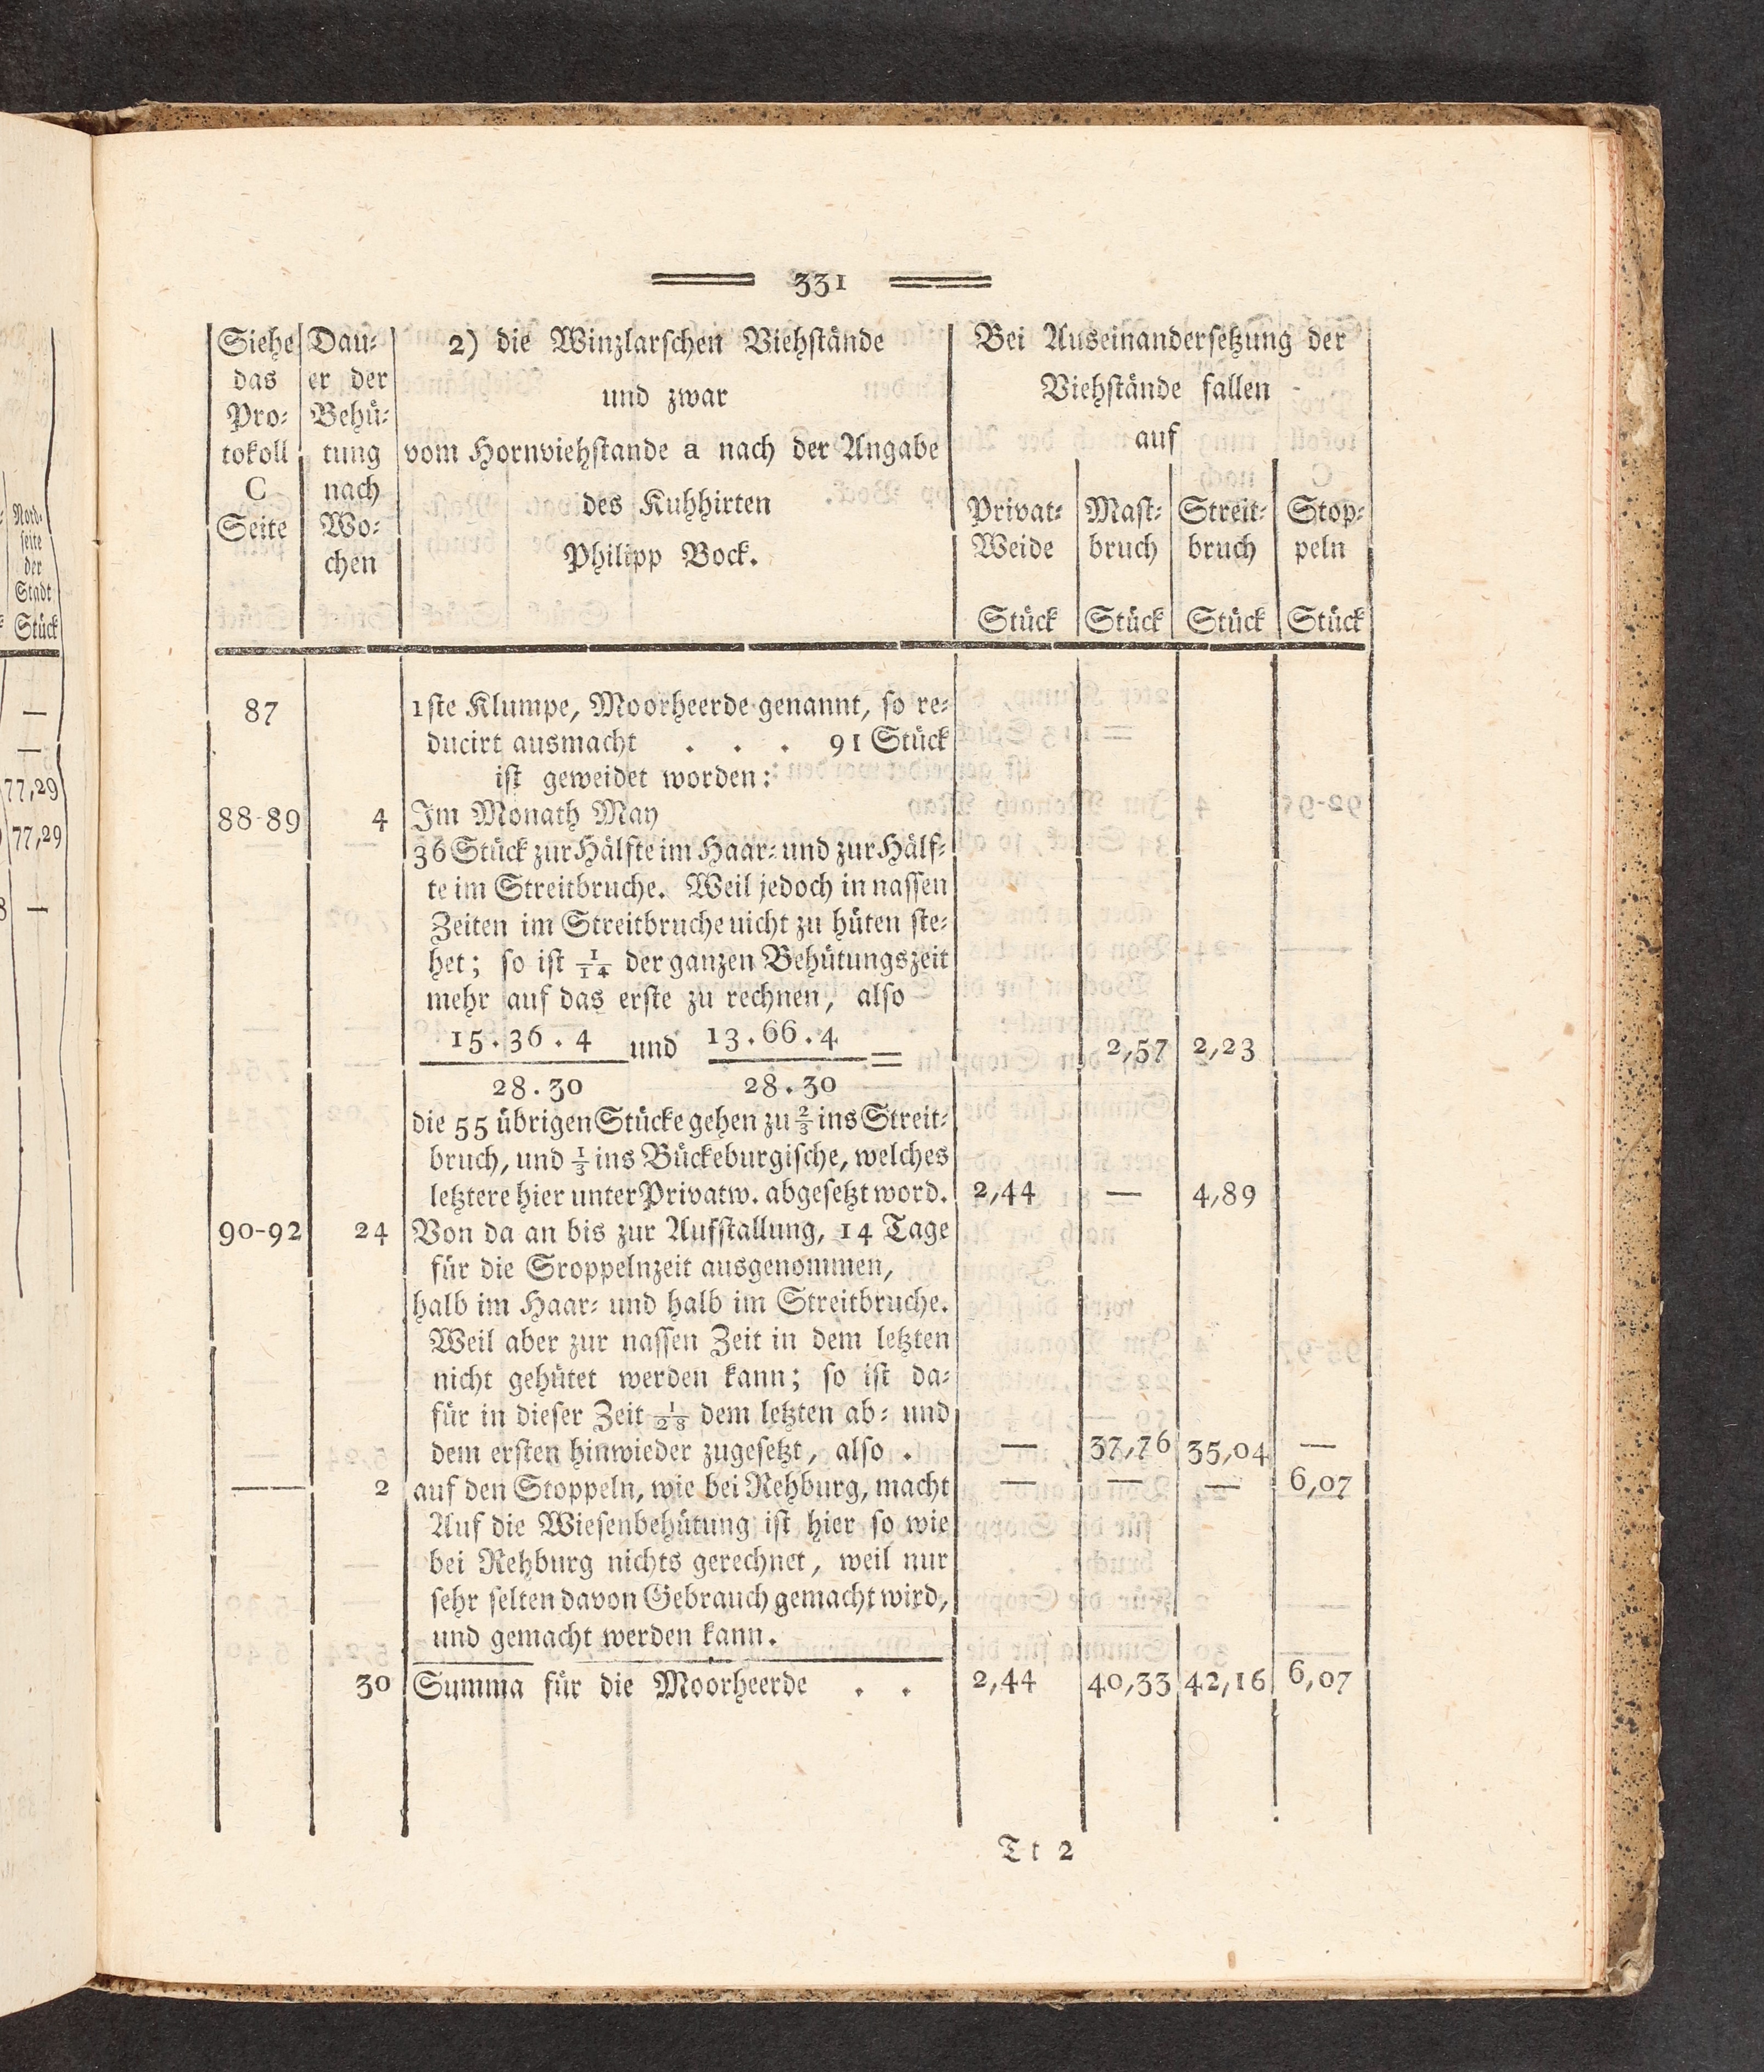 331
Siehe das Pro- tokoll C Seite
Dau- er der Behü- tung nach Wo- chen
2) die Winzlarschen Viehstände
und zwar
vom Hornviehstande a nach der Angabe
des Kuhhirten
Philipp Bock.
Bei Auseinandersetzung der
Viehstände fallen
auf
Privat- Mast- Streit- Stop-
Weide bruch bruch peln
Stück Stück Stück Stück
87 1ste Klumpe, Moorheerde genannt, so re-
ducirt ausmacht . . . 91 Stück
ist geweidet worden:
88-89 4 Im Monath May
36 Stück zur Hälfte im Haar- und zur Hälf-
te im Streitbruche. Weil jedoch in nassen
Zeiten im Streitbruche nicht zu hüten ste-
het; so ist 1/14 der ganzen Behütungszeit
mehr auf das erste zu rechnen, also
15.36.4 und 13.66.4 = 2,57 2,23
28.30 28.30
die 55 übrigen Stücke gehen zu 2/3 ins Streit-
bruch, und 1/3 ins Bückeburgische, welches
letztere hier unter Privatw. abgesetzt word. 2,44 — 4,89
90-92 24 Von da an bis zur Aufstallung, 14 Tage
für die Sroppelnzeit ausgenommen,
halb im Haar- und halb im Streitbruche.
Weil aber zur nassen Zeit in dem letzten
nicht gehütet werden kann; so ist da-
für in dieser Zeit 1/28 dem letzten ab- und
dem ersten hinwieder zugesetzt, also . — 37,76 35,04 —
— 2 auf den Stoppeln, wie bei Rehburg, macht — — — 6,07
Auf die Wiesenbehütung ist hier so wie
bei Rehburg nichts gerechnet, weil nur
sehr selten davon Gebrauch gemacht wird,
und gemacht werden kann.
30 Summa für die Moorheerde . . 2,44 40,33 42,16 6,07
Tt 2
Nord-
seite
der
Stadt
Stück
—
—
77,29
77,29
—